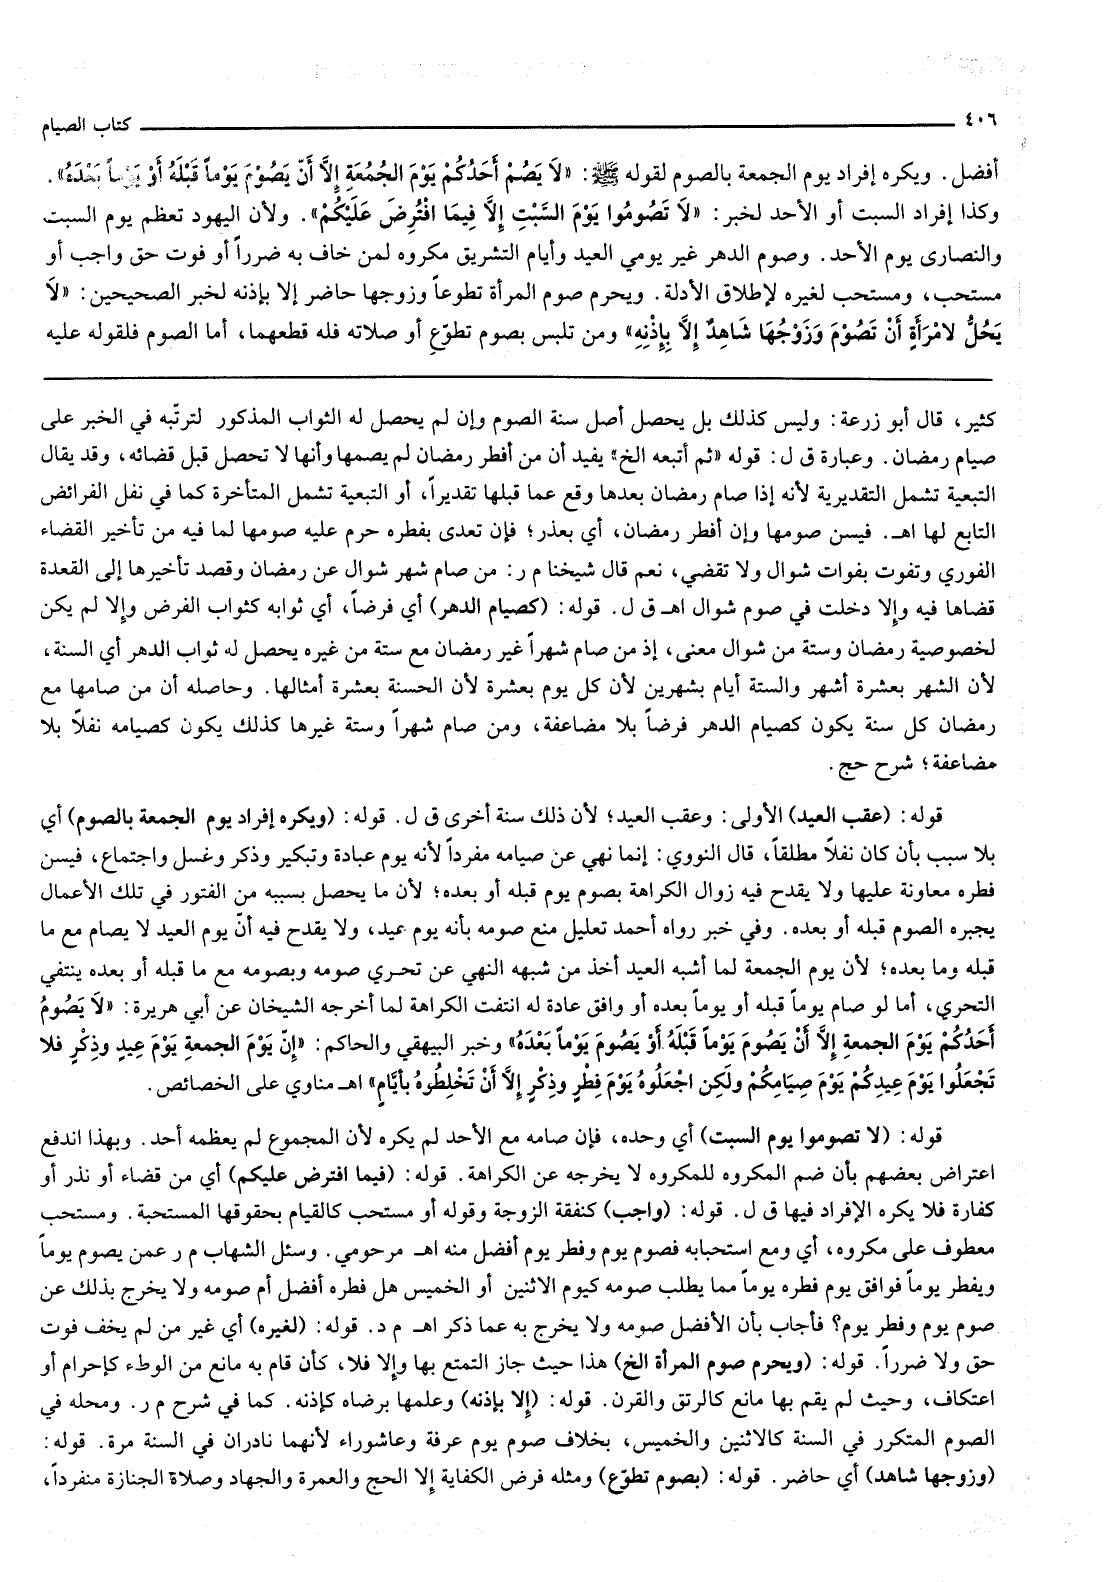 ٤٠٦ كتاب الصيام
أفضل. ويكره إفراد يوم الجمعة بالصوم لقوله ﷺ: «لاَ يَصُمْ أَحَدُكُمْ يَوْمَ الجُمُعَةِ إِلاَّ أَنْ يَصُوْمَ يَوْماً قَبْلَهُ أَوْ يَوْماً بَعْدَهُ».
وكذا إفراد السبت أو الأحد لخبر: «لاَ تَصُومُوا يَوْمَ السَّبْتِ إِلاَّ فِيمَا افْتُرِضَ عَلَيْكُمْ». ولأن اليهود تعظم يوم السبت
والنصارى يوم الأحد. وصوم الدهر غير يومي العيد وأيام التشريق مكروه لمن خاف به ضرراً أو فوت حق واجب أو
مستحب، ومستحب لغيره لإطلاق الأدلة. ويحرم صوم المرأة تطوعاً وزوجها حاضر إلا بإذنه لخبر الصحيحين: «لاَ
يَحُلُّ لامْرَأَةٍ أَنْ تَصُوْمَ وَزَوْجُهَا شَاهِدٌ إِلاَّ بِإِذْنِهِ» ومن تلبس بصوم تطوّعِ أو صلاته فله قطعهما، أما الصوم فلقوله عليه
كثير، قال أبو زرعة: وليس كذلك بل يحصل أصل سنة الصوم وإن لم يحصل له الثواب المذكور لترتّبه في الخبر على
صيام رمضان. وعبارة ق ل: قوله «ثم أتبعه الخ» يفيد أن من أفطر رمضان لم يصمها وأنها لا تحصل قبل قضائه، وقد يقال
التبعية تشمل التقديرية لأنه إذا صام رمضان بعدها وقع عما قبلها تقديراً، أو التبعية تشمل المتأخرة كما في نفل الفرائض
التابع لها اهـ. فيسن صومها وإن أفطر رمضان، أي بعذر؛ فإن تعدى بفطره حرم عليه صومها لما فيه من تأخير القضاء
الفوري وتفوت بفوات شوال ولا تقضي، نعم قال شيخنا م ر: من صام شهر شوال عن رمضان وقصد تأخيرها إلى القعدة
قضاها فيه وإلا دخلت في صوم شوال اهـ ق ل. قوله: (كصيام الدهر) أي فرضاً، أي ثوابه كثواب الفرض وإلا لم يكن
لخصوصية رمضان وستة من شوال معنى، إذ من صام شهراً غير رمضان مع ستة من غيره يحصل له ثواب الدهر أي السنة،
لأن الشهر بعشرة أشهر والستة أيام بشهرين لأن كل يوم بعشرة لأن الحسنة بعشرة أمثالها. وحاصله أن من صامها مع
رمضان كل سنة يكون كصيام الدهر فرضاً بلا مضاعفة، ومن صام شهراً وستة غيرها كذلك يكون كصيامه نفلاً بلا
مضاعفة؛ شرح حج.
قوله: (عقب العيد) الأولى: وعقب العيد؛ لأن ذلك سنة أخرى ق ل. قوله: (ويكره إفراد يوم الجمعة بالصوم) أي
بلا سبب بأن كان نفلاً مطلقاً، قال النووي: إنما نهي عن صيامه مفرداً لأنه يوم عبادة وتبكير وذكر وغسل واجتماع، فيسن
فطره معاونة عليها ولا يقدح فيه زوال الكراهة بصوم يوم قبله أو بعده؛ لأن ما يحصل بسببه من الفتور في تلك الأعمال
يجبره الصوم قبله أو بعده. وفي خبر رواه أحمد تعليل منع صومه بأنه يوم عيد، ولا يقدح فيه أنّ يوم العيد لا يصام مع ما
قبله وما بعده؛ لأن يوم الجمعة لما أشبه العيد أخذ من شبهه النهي عن تحري صومه وبصومه مع ما قبله أو بعده ينتفي
التحري، أما لو صام يوماً قبله أو يوماً بعده أو وافق عادة له انتفت الكراهة لما أخرجه الشيخان عن أبي هريرة: «لاَ يَصُومُ
أَحَدُكُمْ يَوْمَ الجمعةِ إِلاَّ أَنْ يَصُومَ يَوْماً قَبْلَهُ أَوْ يَصُومَ يَوْماً بَعْدَهُ» وخبر البيهقي والحاكم: «إِنّ يَوْمَ الجمعةِ يَوْمَ عِيدٍ وذِكْرٍ فلا
تَجْعَلُوا يَوْمَ عِيدِكُمْ يَوْمَ صِيَامِكُمْ ولَكِن اجْعَلُوهُ يَوْمَ فِطْرٍ وذِكْرٍ إِلاَّ أَنْ تَخْلِطُوهُ بأيَّامٍ» اهـ مناوي على الخصائص.
قوله: (لا تصوموا يوم السبت) أي وحده، فإن صامه مع الأحد لم يكره لأن المجموع لم يعظمه أحد. وبهذا اندفع
اعتراض بعضهم بأن ضم المكروه للمكروه لا يخرجه عن الكراهة. قوله: (فيما افترض عليكم) أي من قضاء أو نذر أو
كفارة فلا يكره الإفراد فيها ق ل. قوله: (واجب) كنفقة الزوجة وقوله أو مستحب كالقيام بحقوقها المستحبة. ومستحب
معطوف على مكروه، أي ومع استحبابه فصوم يوم وفطر يوم أفضل منه اهـ مرحومي. وسئل الشهاب م ر عمن يصوم يوماً
ويفطر يوماً فوافق يوم فطره يوماً مما يطلب صومه كيوم الاثنين أو الخميس هل فطره أفضل أم صومه ولا يخرج بذلك عن
صوم يوم وفطر يوم؟ فأجاب بأن الأفضل صومه ولا يخرج به عما ذكر اهـ م د. قوله: (لغيره) أي غير من لم يخف فوت
حق ولا ضرراً. قوله: (ويحرم صوم المرأة الخ) هذا حيث جاز التمتع بها وإلا فلا، كأن قام به مانع من الوطء كإحرام أو
اعتكاف، وحيث لم يقم بها مانع كالرتق والقرن. قوله: (إلا بإذنه) وعلمها برضاه كإذنه. كما في شرح م ر. ومحله في
الصوم المتكرر في السنة كالاثنين والخميس، بخلاف صوم يوم عرفة وعاشوراء لأنهما نادران في السنة مرة. قوله:
(وزوجها شاهد) أي حاضر. قوله: (بصوم تطوّع) ومثله فرض الكفاية إلا الحج والعمرة والجهاد وصلاة الجنازة منفرداً،